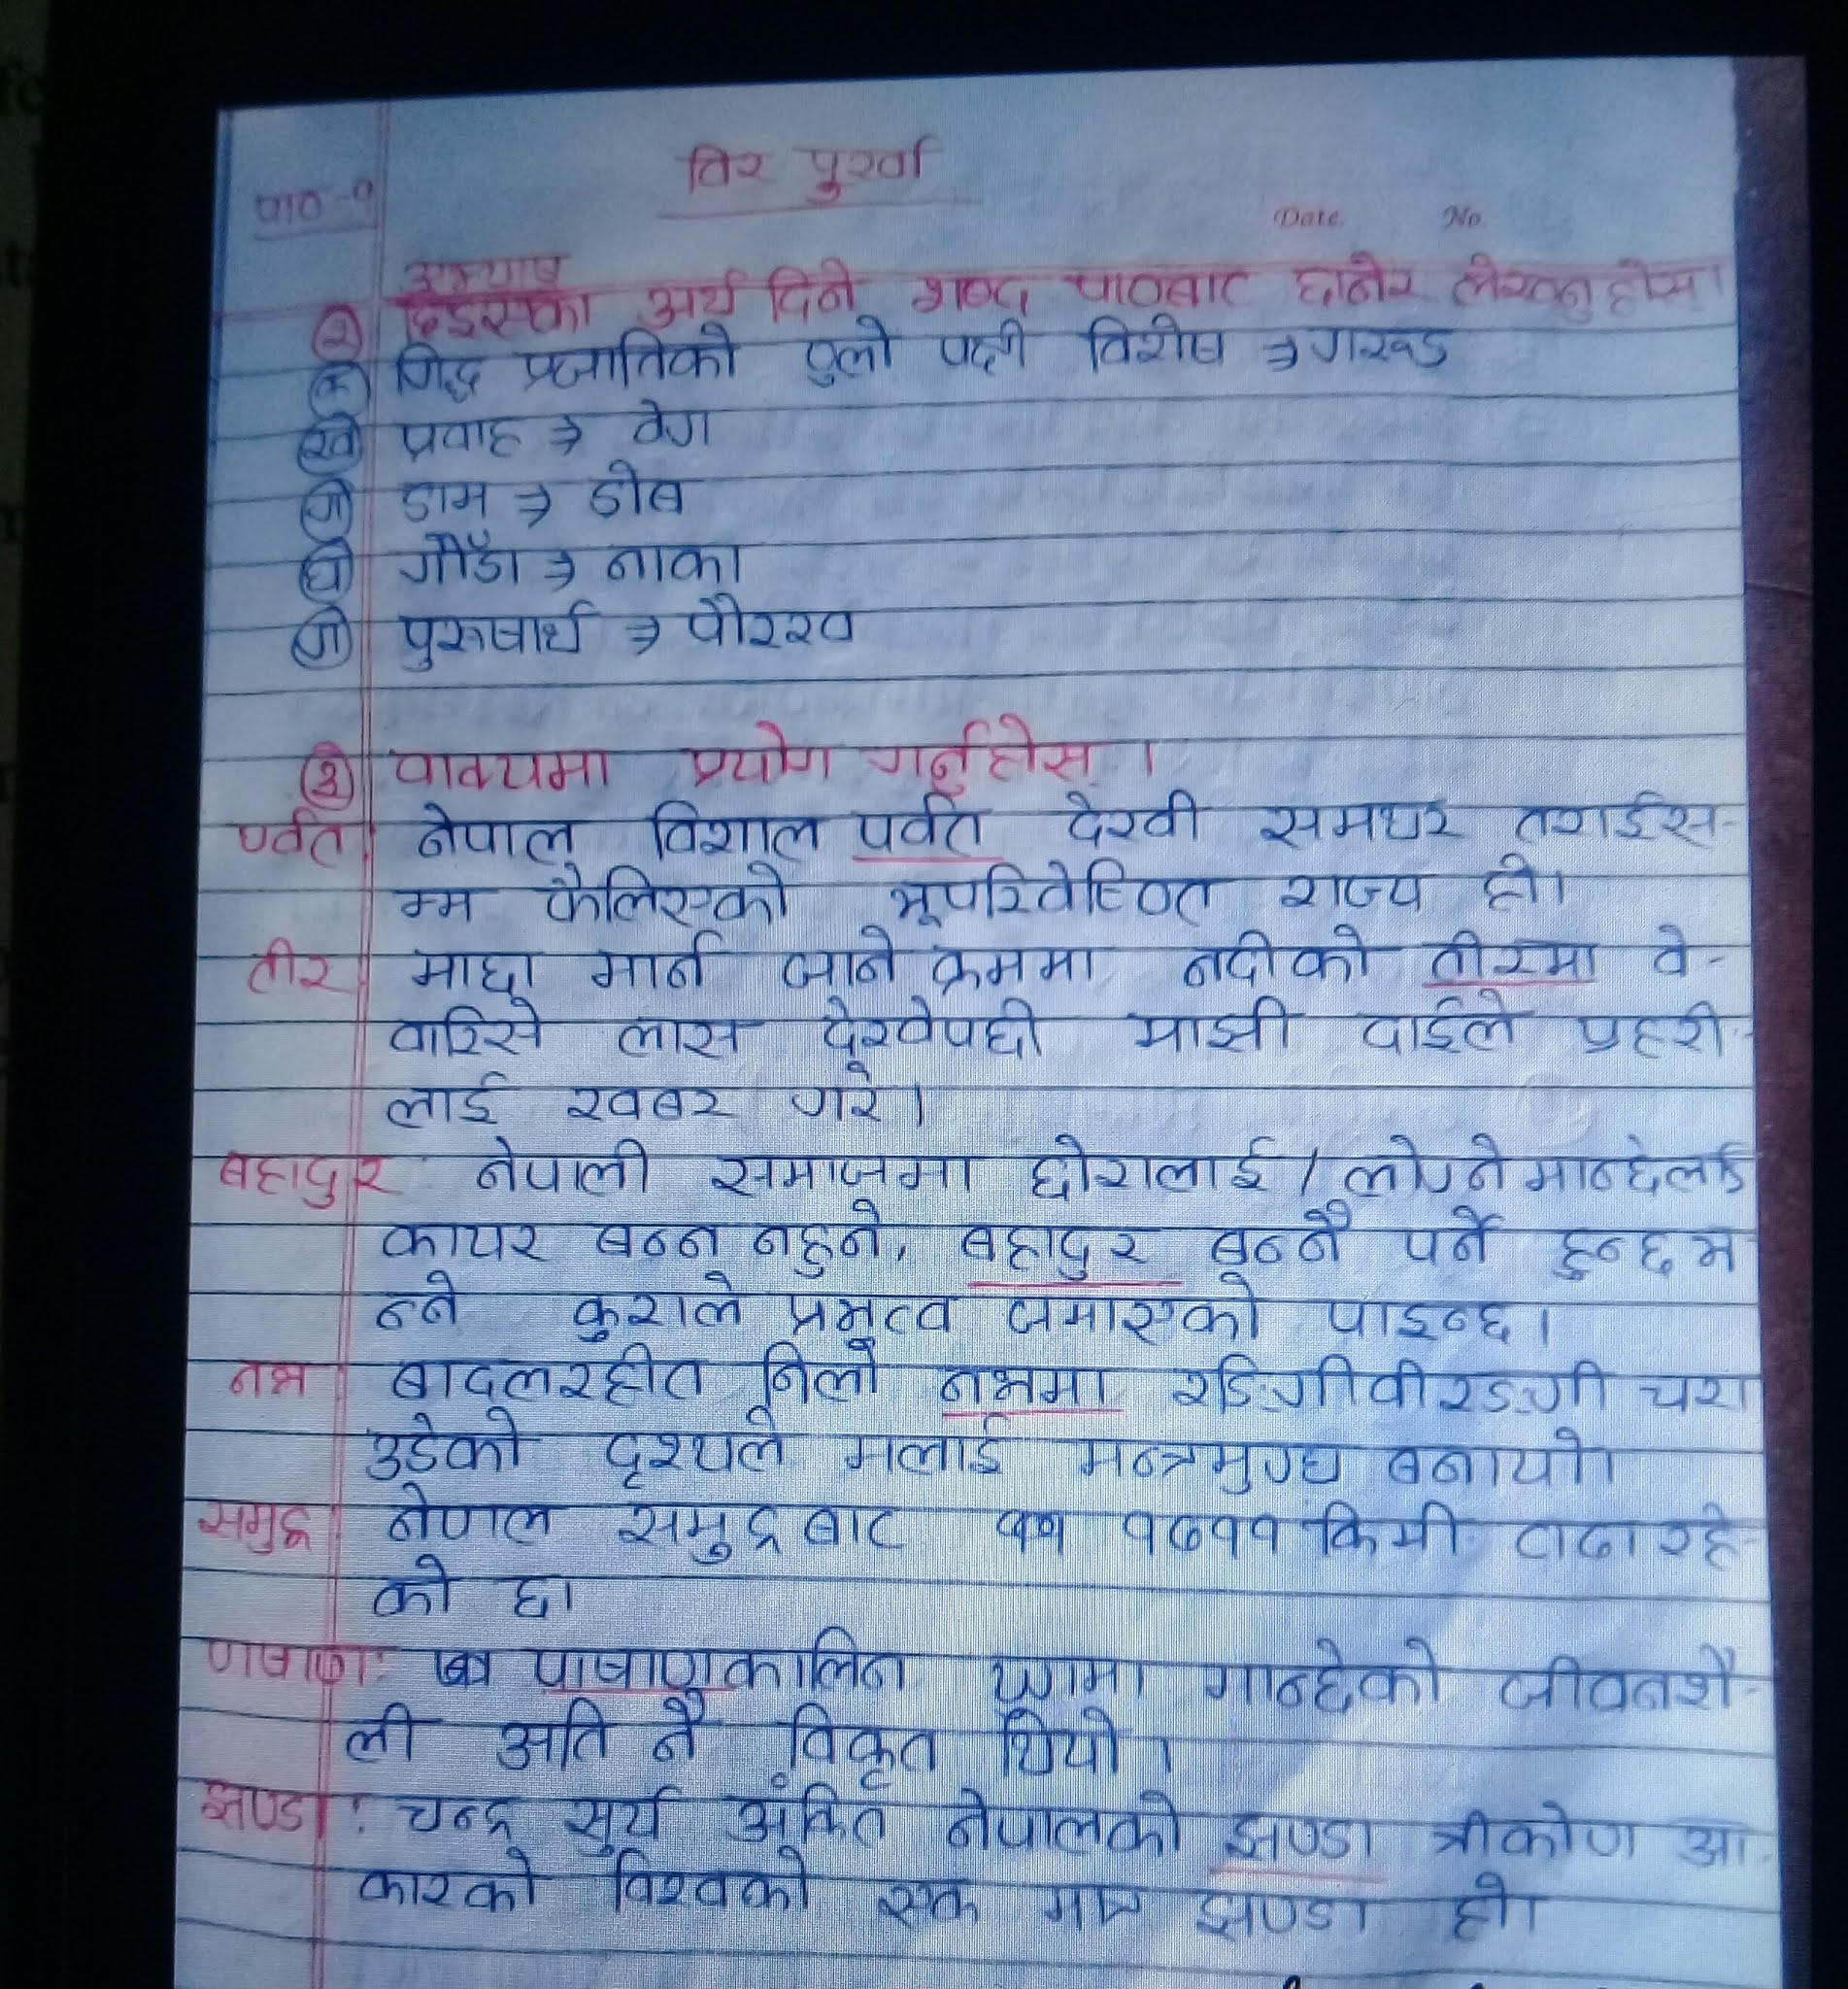 विर पुर्खा
पाठ -१
Date No
अभ्यास
२ दिइएका अर्थ दिने शब्द पाठबाट छानेर लेख्नुहोस।
क गिद्ध प्रजातिको ठुलो पक्षी विशेष ⇒ गरूड
ख प्रवाह ⇒ वेग
ग डाम ⇒ डोब
घ गौँडा ⇒ नाका
ङ पुरूषार्थ ⇒ पौरख
३ वाक्यमा प्रयोग गर्नुहोस् ।
पर्वत नेपाल विशाल पर्वत देखी समथर तराईस-
म्म फैलिएको भूपरिवेष्ठित राज्य हो।
तीर माछा मार्न जाने क्रममा नदीको तीरमा वे-
वारिसे लास देखेपछी माझी दाईले प्रहरी
लाई खबर गरे।
बहादुर नेपाली समाजमा छोरालाई / लोग्ने मान्छेलाई
कायर बन्न नहुने, बहादुर बन्नै पर्ने हुन्छ भ
न्ने कुराले प्रभुत्व जमाएको पाइन्छ।
नभ बादलरहीत निलो नभमा रङिगीवीरङगी चरा
उडेको दृश्यले मलाई मन्त्रमुग्ध बनायो।
समुद्र नेपाल समुद्र बाट ११ १७११ किमी टाढा रहे
को छ।
पाषाण: पाषाणकालिन युगमा मान्छेको जीवनशै-
ली अति नै विकृत थियो।
झण्डा : चन्द्र सुर्य अंकित नेपालको झण्डा त्रीकोण आ
कारको विश्वको एक मात्र झण्डा हो।